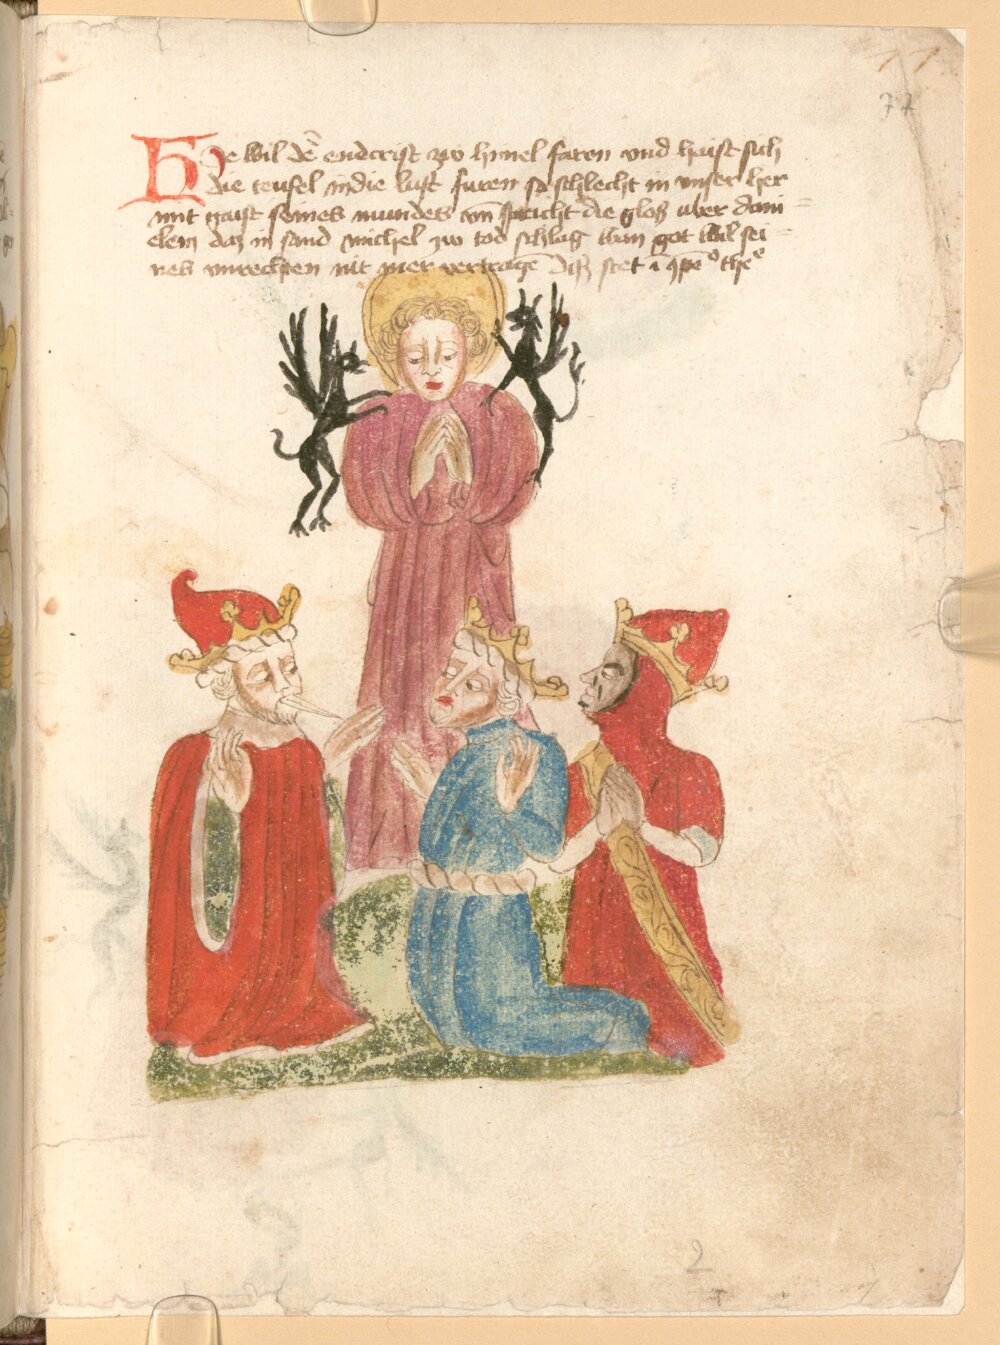 11
77
Hye wil d̄ endcrist zvo himel faren vnd haist sich
die teufel in die lust furen so schlecht in vnser her
mit gaist seines mundes vn̄ spricht die glos uber dani=
elem daz in sand michel zvo tod schlag wan got wil sei=
nes vnrechten nit mer vertragē Diß stet ī ꝯpēo theo
2